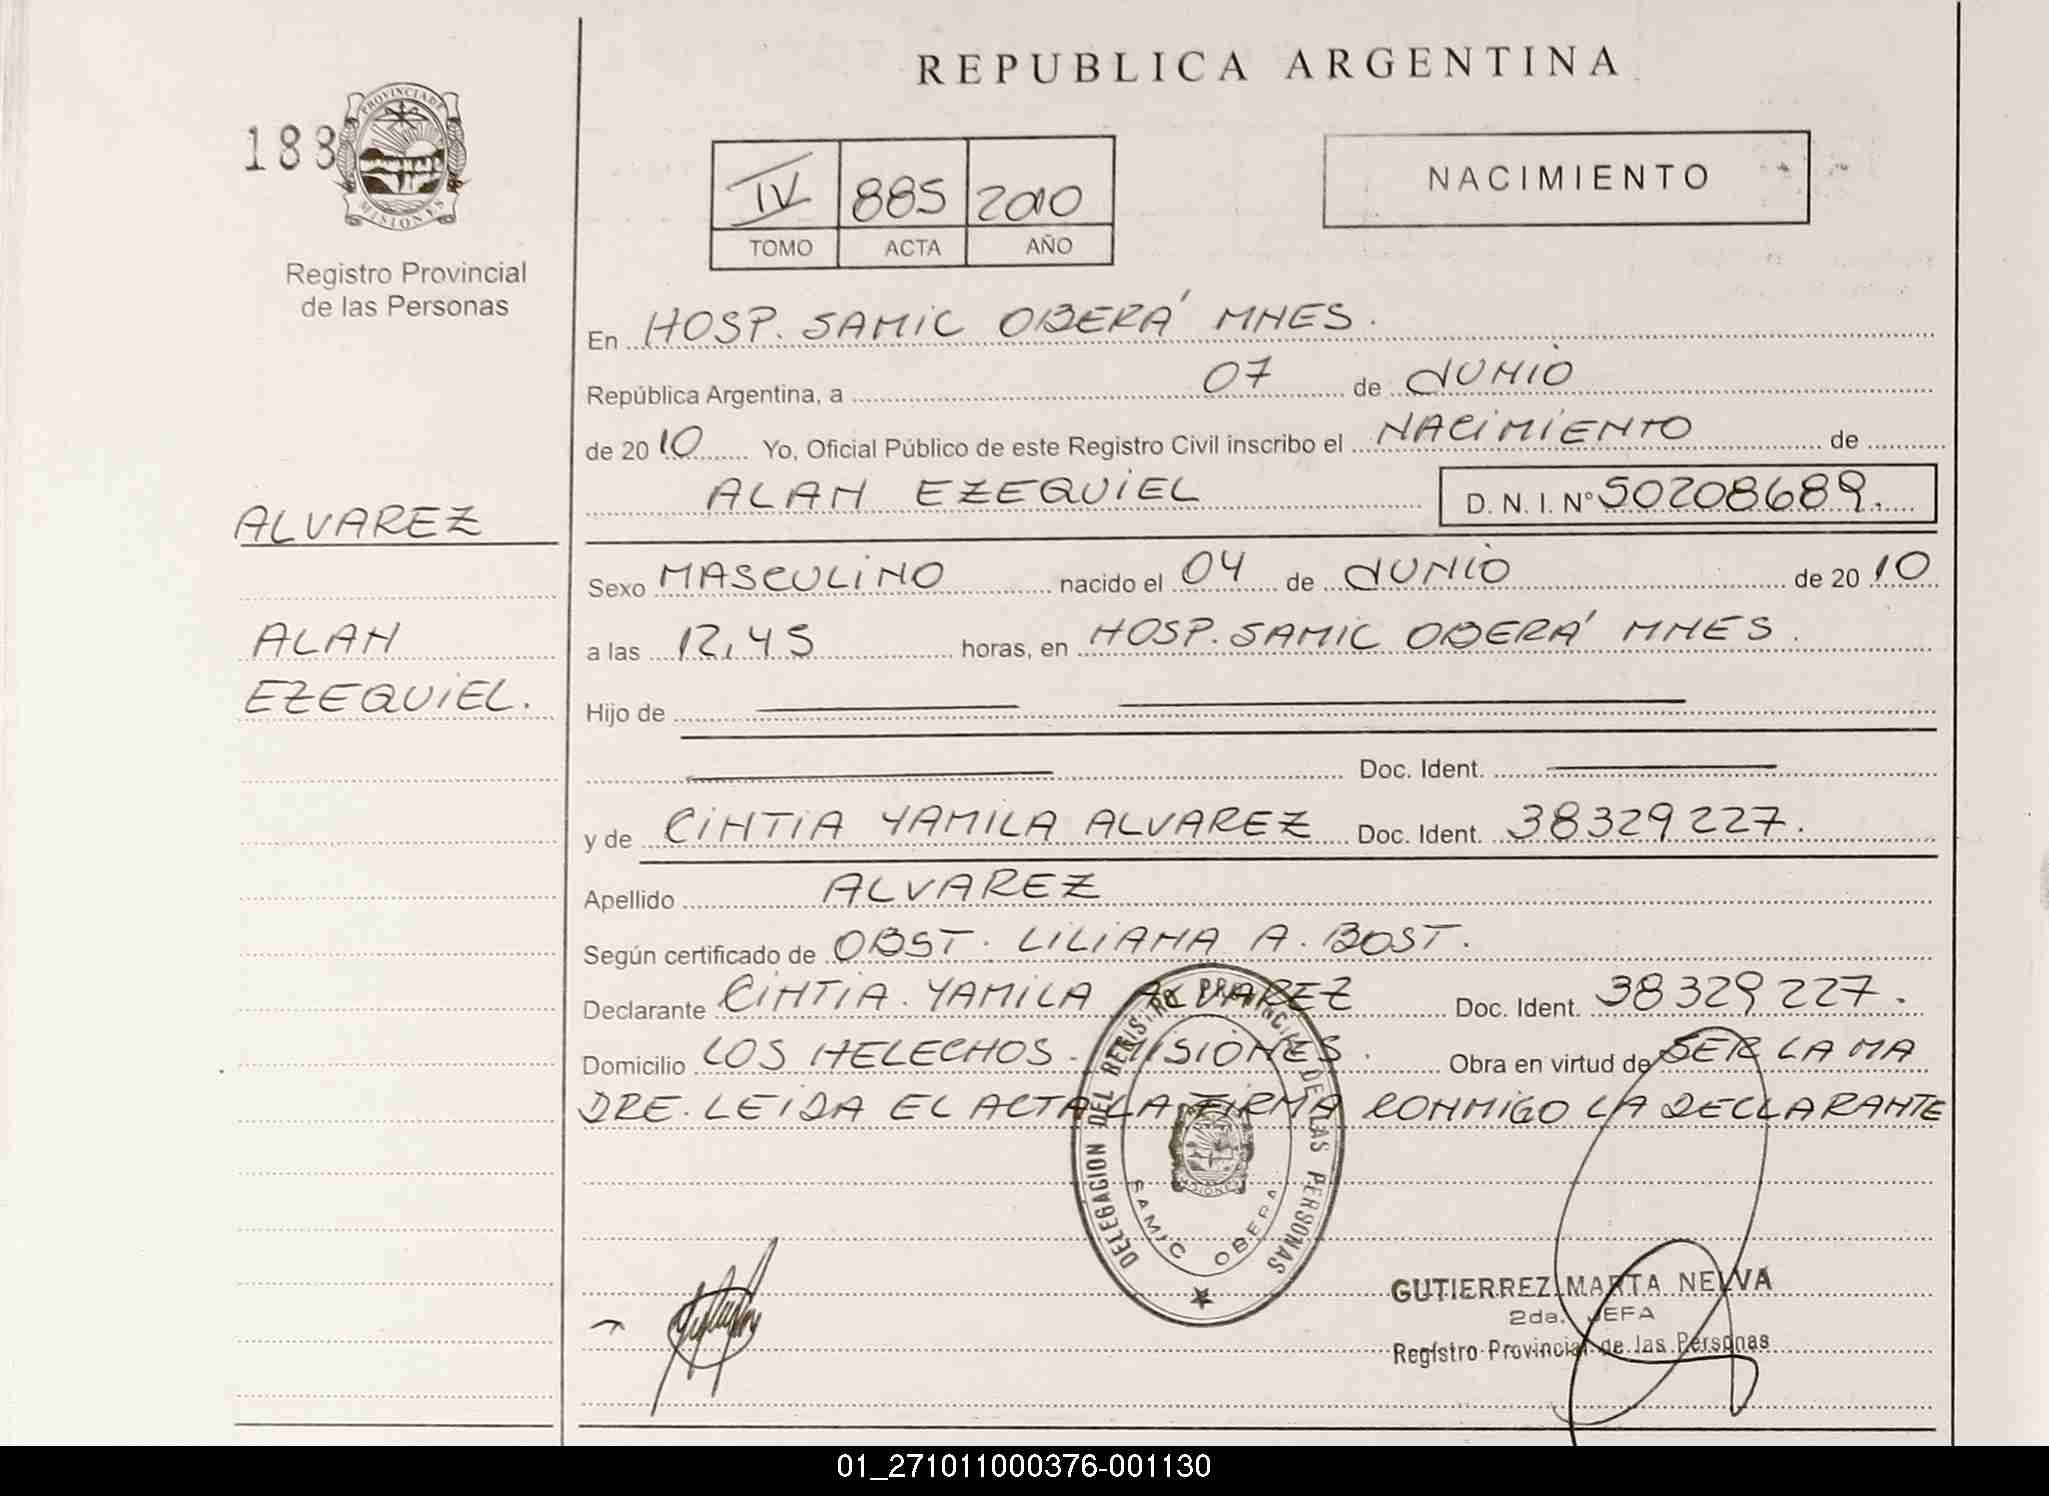 REPUBLICA ARGENTINA
188
PROVINCIA DE
MISIONES
Registro Provincial
de las Personas
IV 885 2010
TOMO ACTA AÑO
NACIMIENTO
En HOSP. SAMIC OBERÁ MNES.
República Argentina, a 07 de JUNIO
de 2010 Yo, Oficial Público de este Registro Civil inscribo el NACIMIENTO de
ALAN EZEQUIEL D. N. I. Nº 50208689.
ALVAREZ
ALAN
EZEQUIEL.
Sexo MASCULINO nacido el 04 de JUNIO de 2010
a las 12,45 horas, en HOSP. SAMIC OBERÁ MNES.
Hijo de
Doc. Ident.
y de CINTIA YAMILA ALVAREZ Doc. Ident. 38329227.
Apellido ALVAREZ
Según certificado de OBST. LILIANA A. BOST.
Declarante CINTIA. YAMILA ALVAREZ Doc. Ident. 38329227.
Domicilio LOS HELECHOS - MISIONES. Obra en virtud de SER LA MA
DRE. LEIDA EL ACTA LA FIRMA CONMIGO LA DECLARANTE
DELEGACION DEL REGISTRO PROVINCIAL DE LAS PERSONAS
MISIONES
SAMIC OBERA
GUTIERREZ MARTA NELVA
2da. JEFA
Registro Provincial de las Personas
01_271011000376-001130